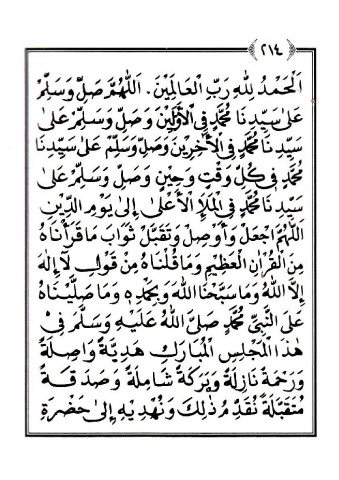 ٢١٤
اَلْحَمْدُ لِلهِ رَبِّ الْعَالَمِيْنَ. اَللّٰهُمَّ صَلِّ وَسَلِّمْ
عَلَى سَيِّدِنَا مُحَمَّدٍ فِي الْأَوَّلِيْنَ وَصَلِّ وَسَلِّمْ عَلَى
سَيِّدِنَا مُحَمَّدٍ فِي الْأَخِرِيْنَ وَصَلِّ وَسَلِّمْ عَلَى سَيِّدِنَا
مُحَمَّدٍ فِي كُلِّ وَقْتٍ وَحِيْنٍ وَصَلِّ وَسَلِّمْ عَلَى
سَيِّدِنَا مُحَمَّدٍ فِي الْمَلَإِ الْأَعْلَى إِلَى يَوْمِ الدِّيْنِ
اَللّٰهُمَّ اجْعَلْ وَأَوْصِلْ وَتَقَبَّلْ ثَوَابَ مَا قَرَأْنَاهُ
مِنَ الْقُرْاٰنِ الْعَظِيْمِ وَمَا قُلْنَاهُ مِنْ قَوْلِ لَآ إِلٰهَ
إِلَّا اللهُ وَمَا سَبَّحْنَا اللهَ وَبِحَمْدِهِ وَمَا صَلَّيْنَاهُ
عَلَى النَّبِيِّ مُحَمَّدٍ صَلَّى اللهُ عَلَيْهِ وَسَلَّمَ فِي
هٰذَا الْمَجْلِسِ الْمُبَارَكِ هَدِيَّةً وَاصِلَةً
وَرَحْمَةً نَازِلَةً وَبَرَكَةً شَامِلَةً وَصَدَقَةً
مُتَقَبَّلَةً نُقَدِّمُ ذٰلِكَ وَنُهْدِيْهِ إِلَى حَضْرَةِ